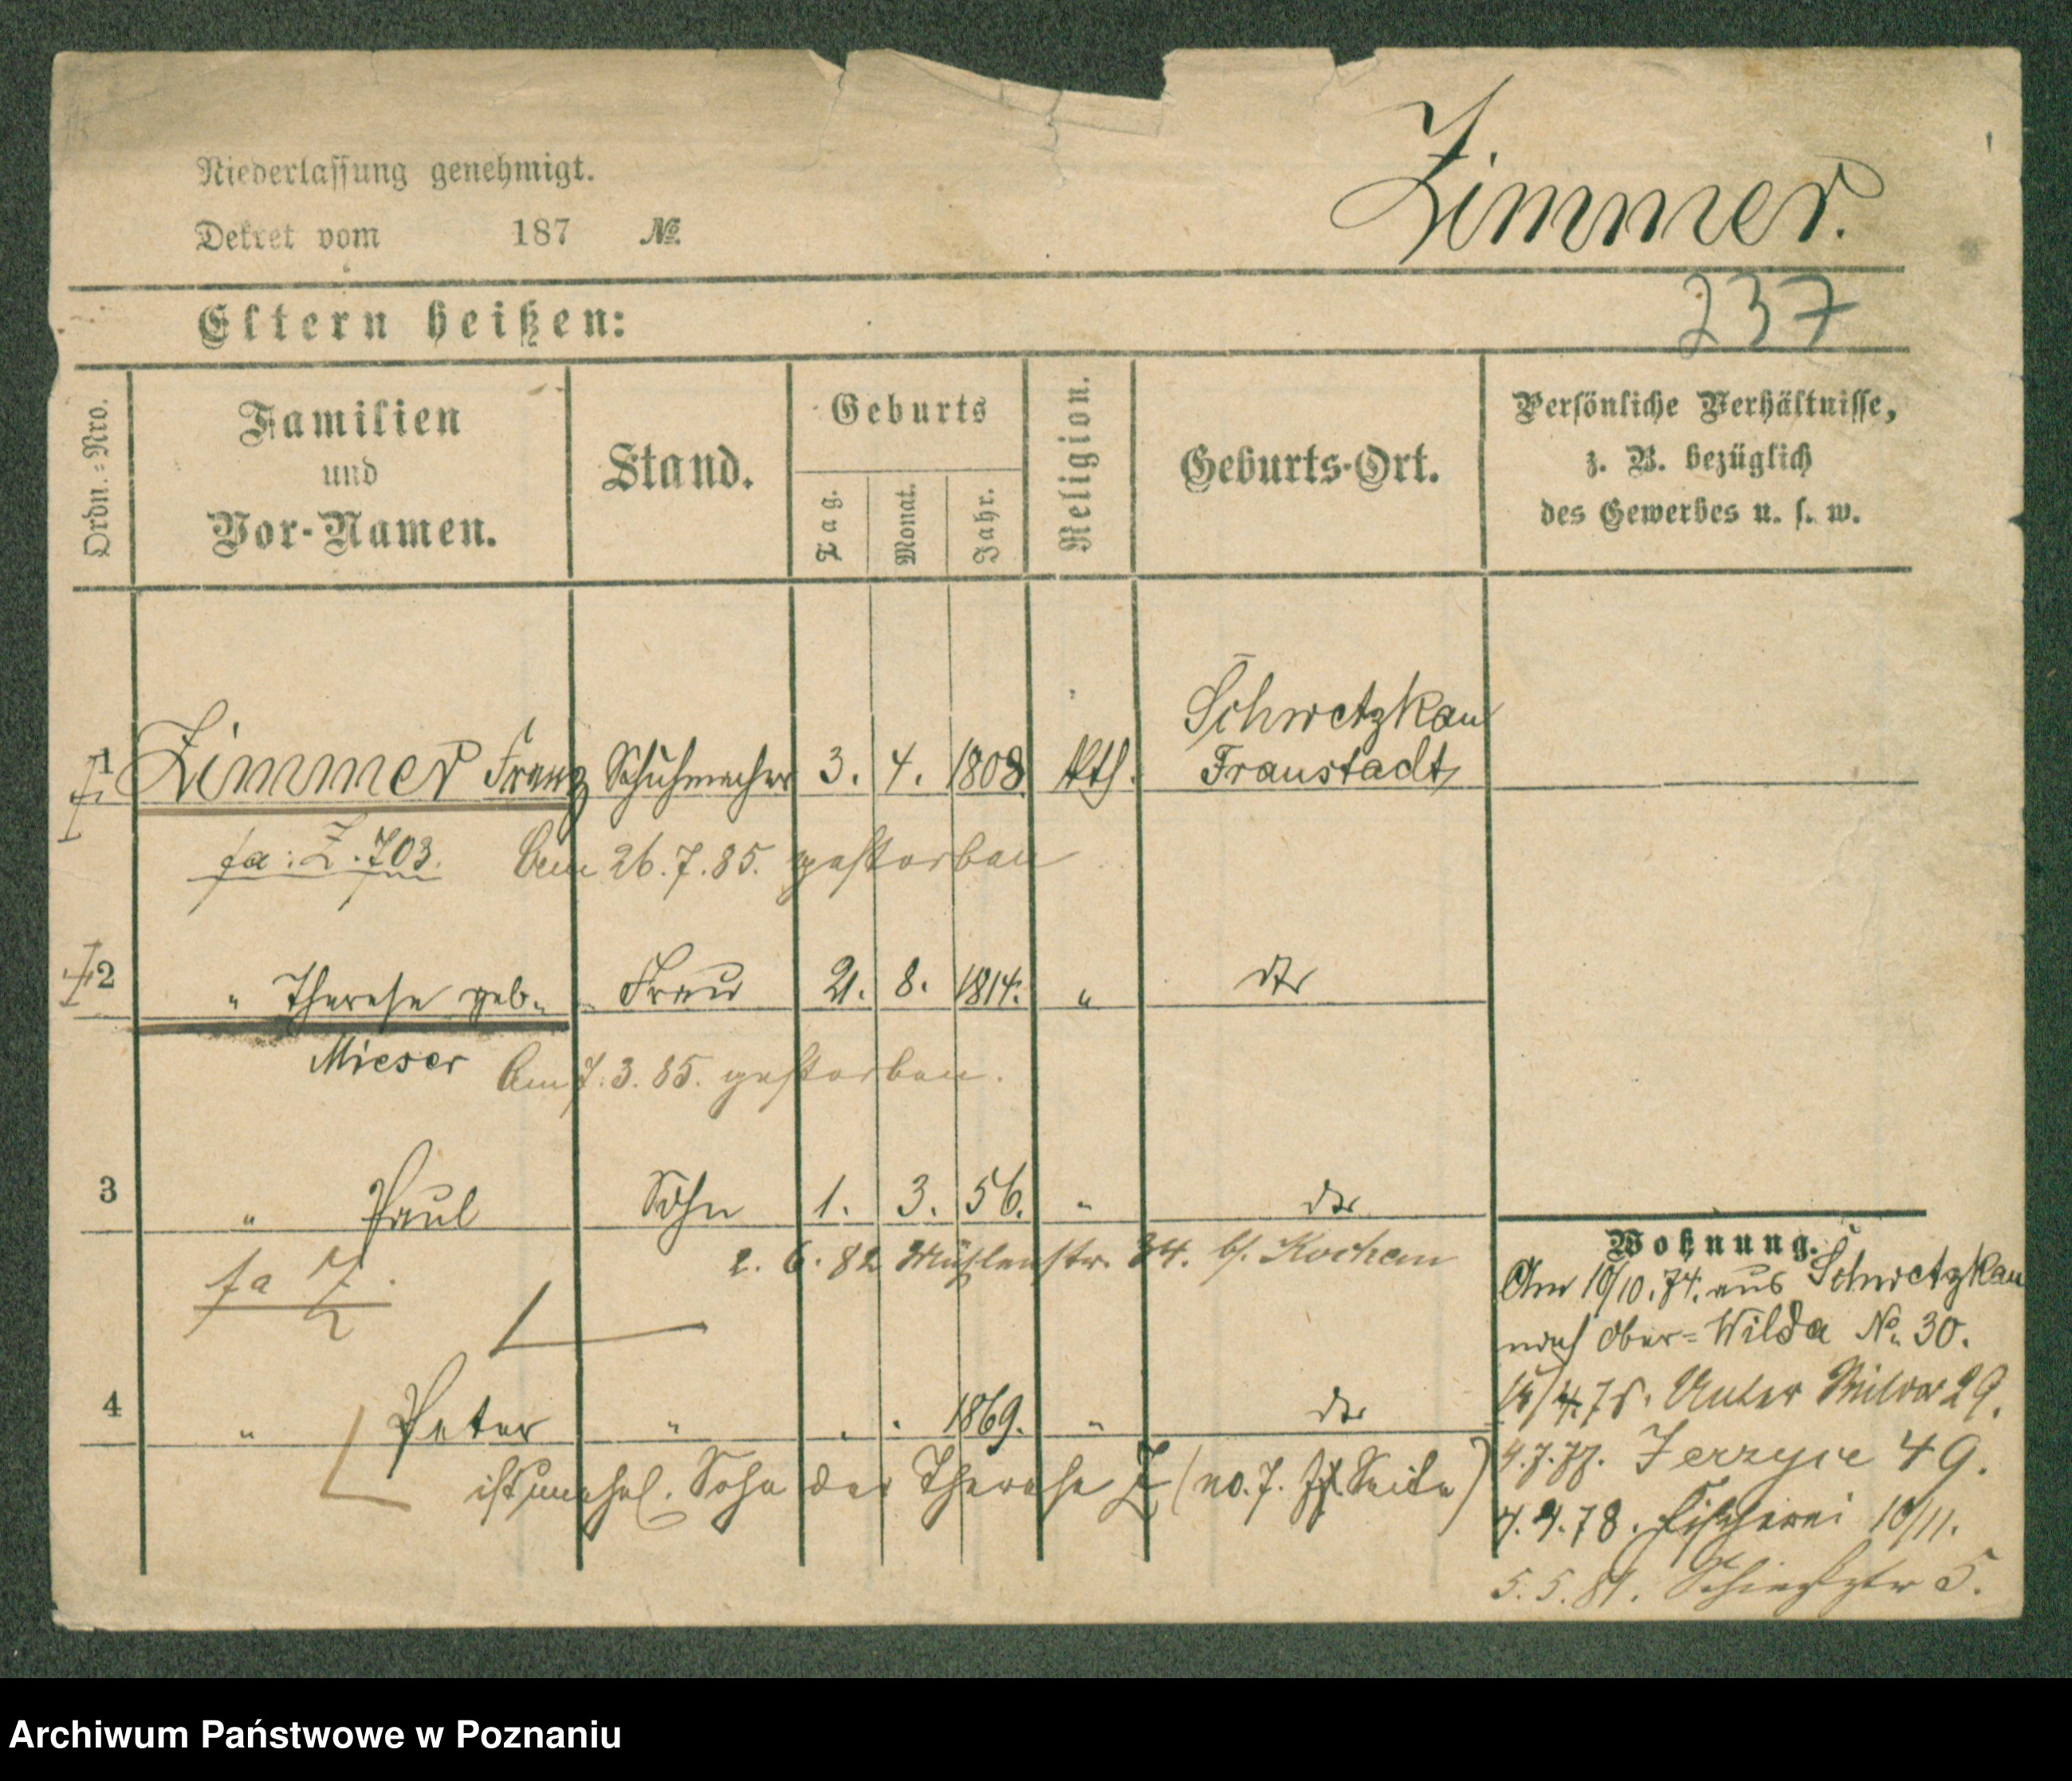 Niederlassung genehmigt.
Zimmer.
Dekret vom 187 №
237
Eltern heißen:
Ordn.-Nro.
Familien
und
Vor-Namen.
Stand.
Geburts
Tag.
Monat.
Jahr.
Religion.
Geburts-Ort.
Persönliche Verhältnisse,
z. B. bezüglich
des Gewerbes u. s. w.
Schwetzkau
1 Zimmer Franz Schuhmacher 3. 4. 1808. kth. Fraustadt
fa: Z. 703. Am 26.7.85. gestorben
2 " Therese geb. Frau 21. 8. 1814. " dto
Mieser Am 7.3.85. gestorben.
3 " Paul Sohn 1. 3. 56. " dto
fa Z. 2.6.82 Mühlenstr. 34. b/.
4 " Peter " . . 1869. " dto
ist unehel. Sohn der Therese Z (no. 7. Seite)
Wohnung.
Am 10/10.74. aus Schwetzkau
nach Ober-Wilda No. 30.
75. Unter Wilda 29.
4.7.77. Jerzyce 49.
4.4.78. Fischerei 10/11.
5.5.81. 5.
Archiwum Państwowe w Poznaniu